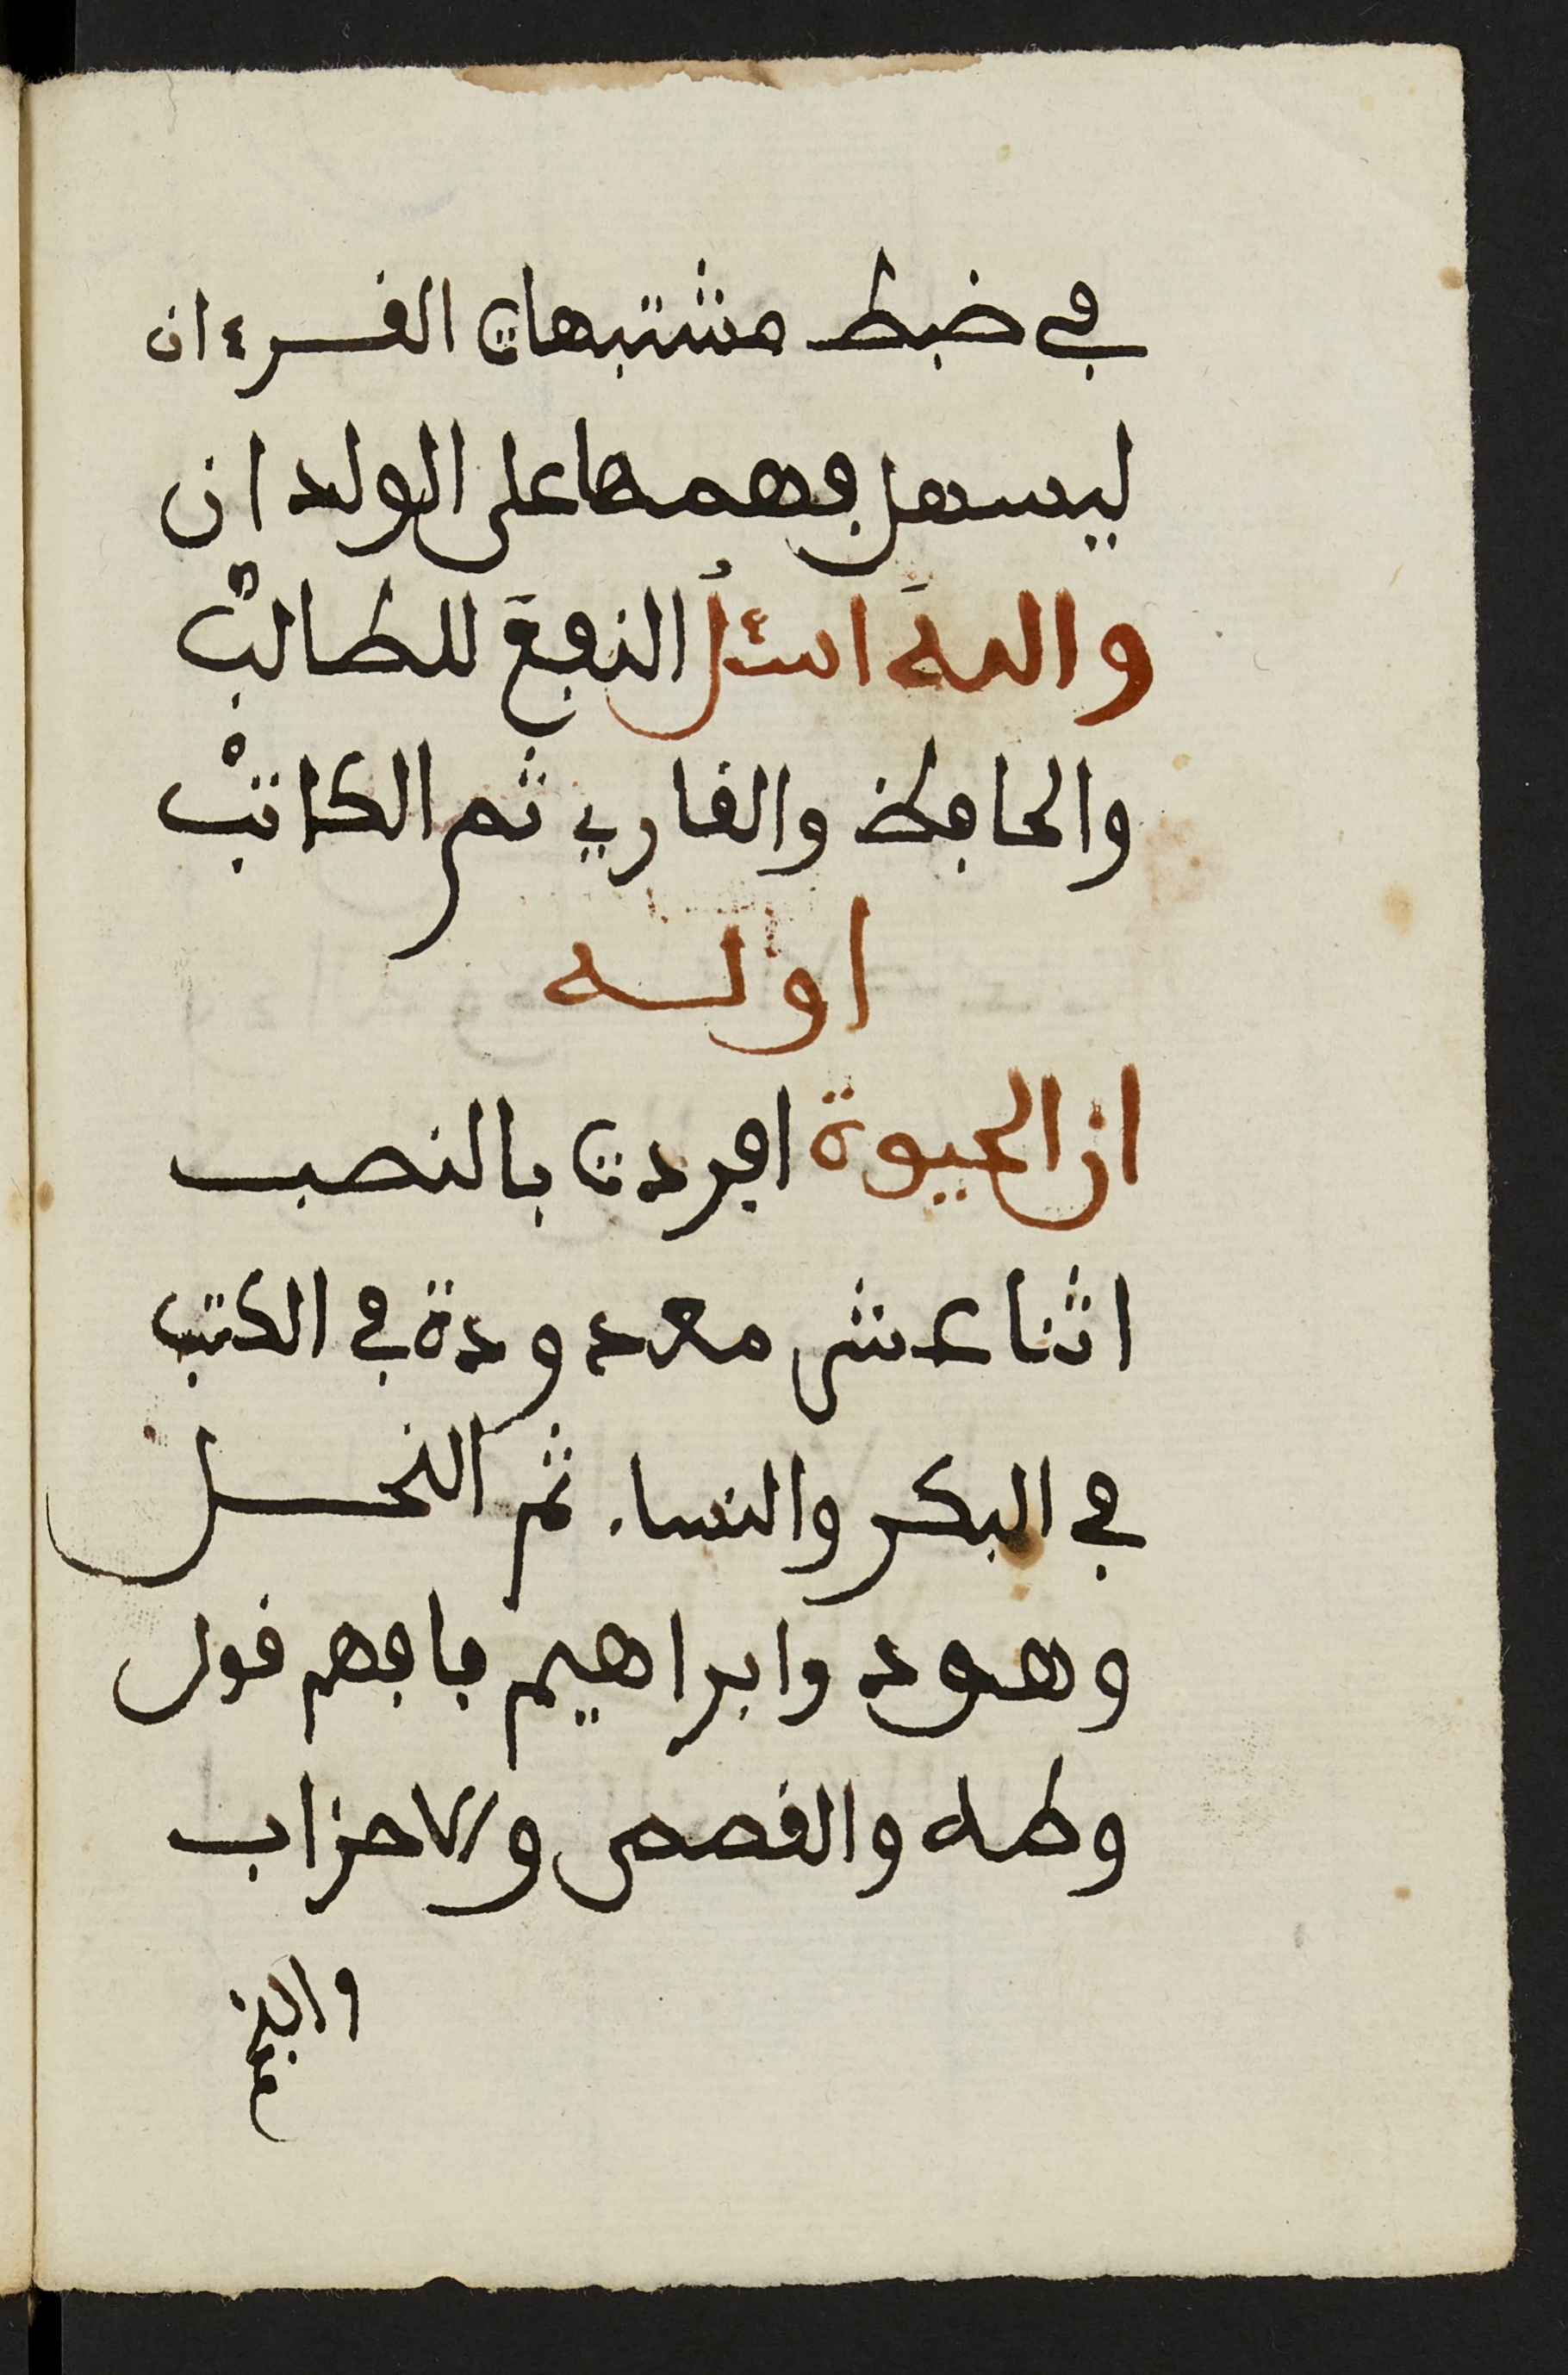 في ضبط متشبهات القرءان
ليسهل فهمها على الولدان
واللهَ اسئلُ النفعَ للطالبْ
والحافظ والقاري ثم الكاتبْ
اولـه
ان الحيوة افردت بالنصب
اثنا عشر معدودة في الكتب
في البكر والنساء ثم النحل
وهود وابراهيم فافهم قول
وطه والقصص والاحزاب